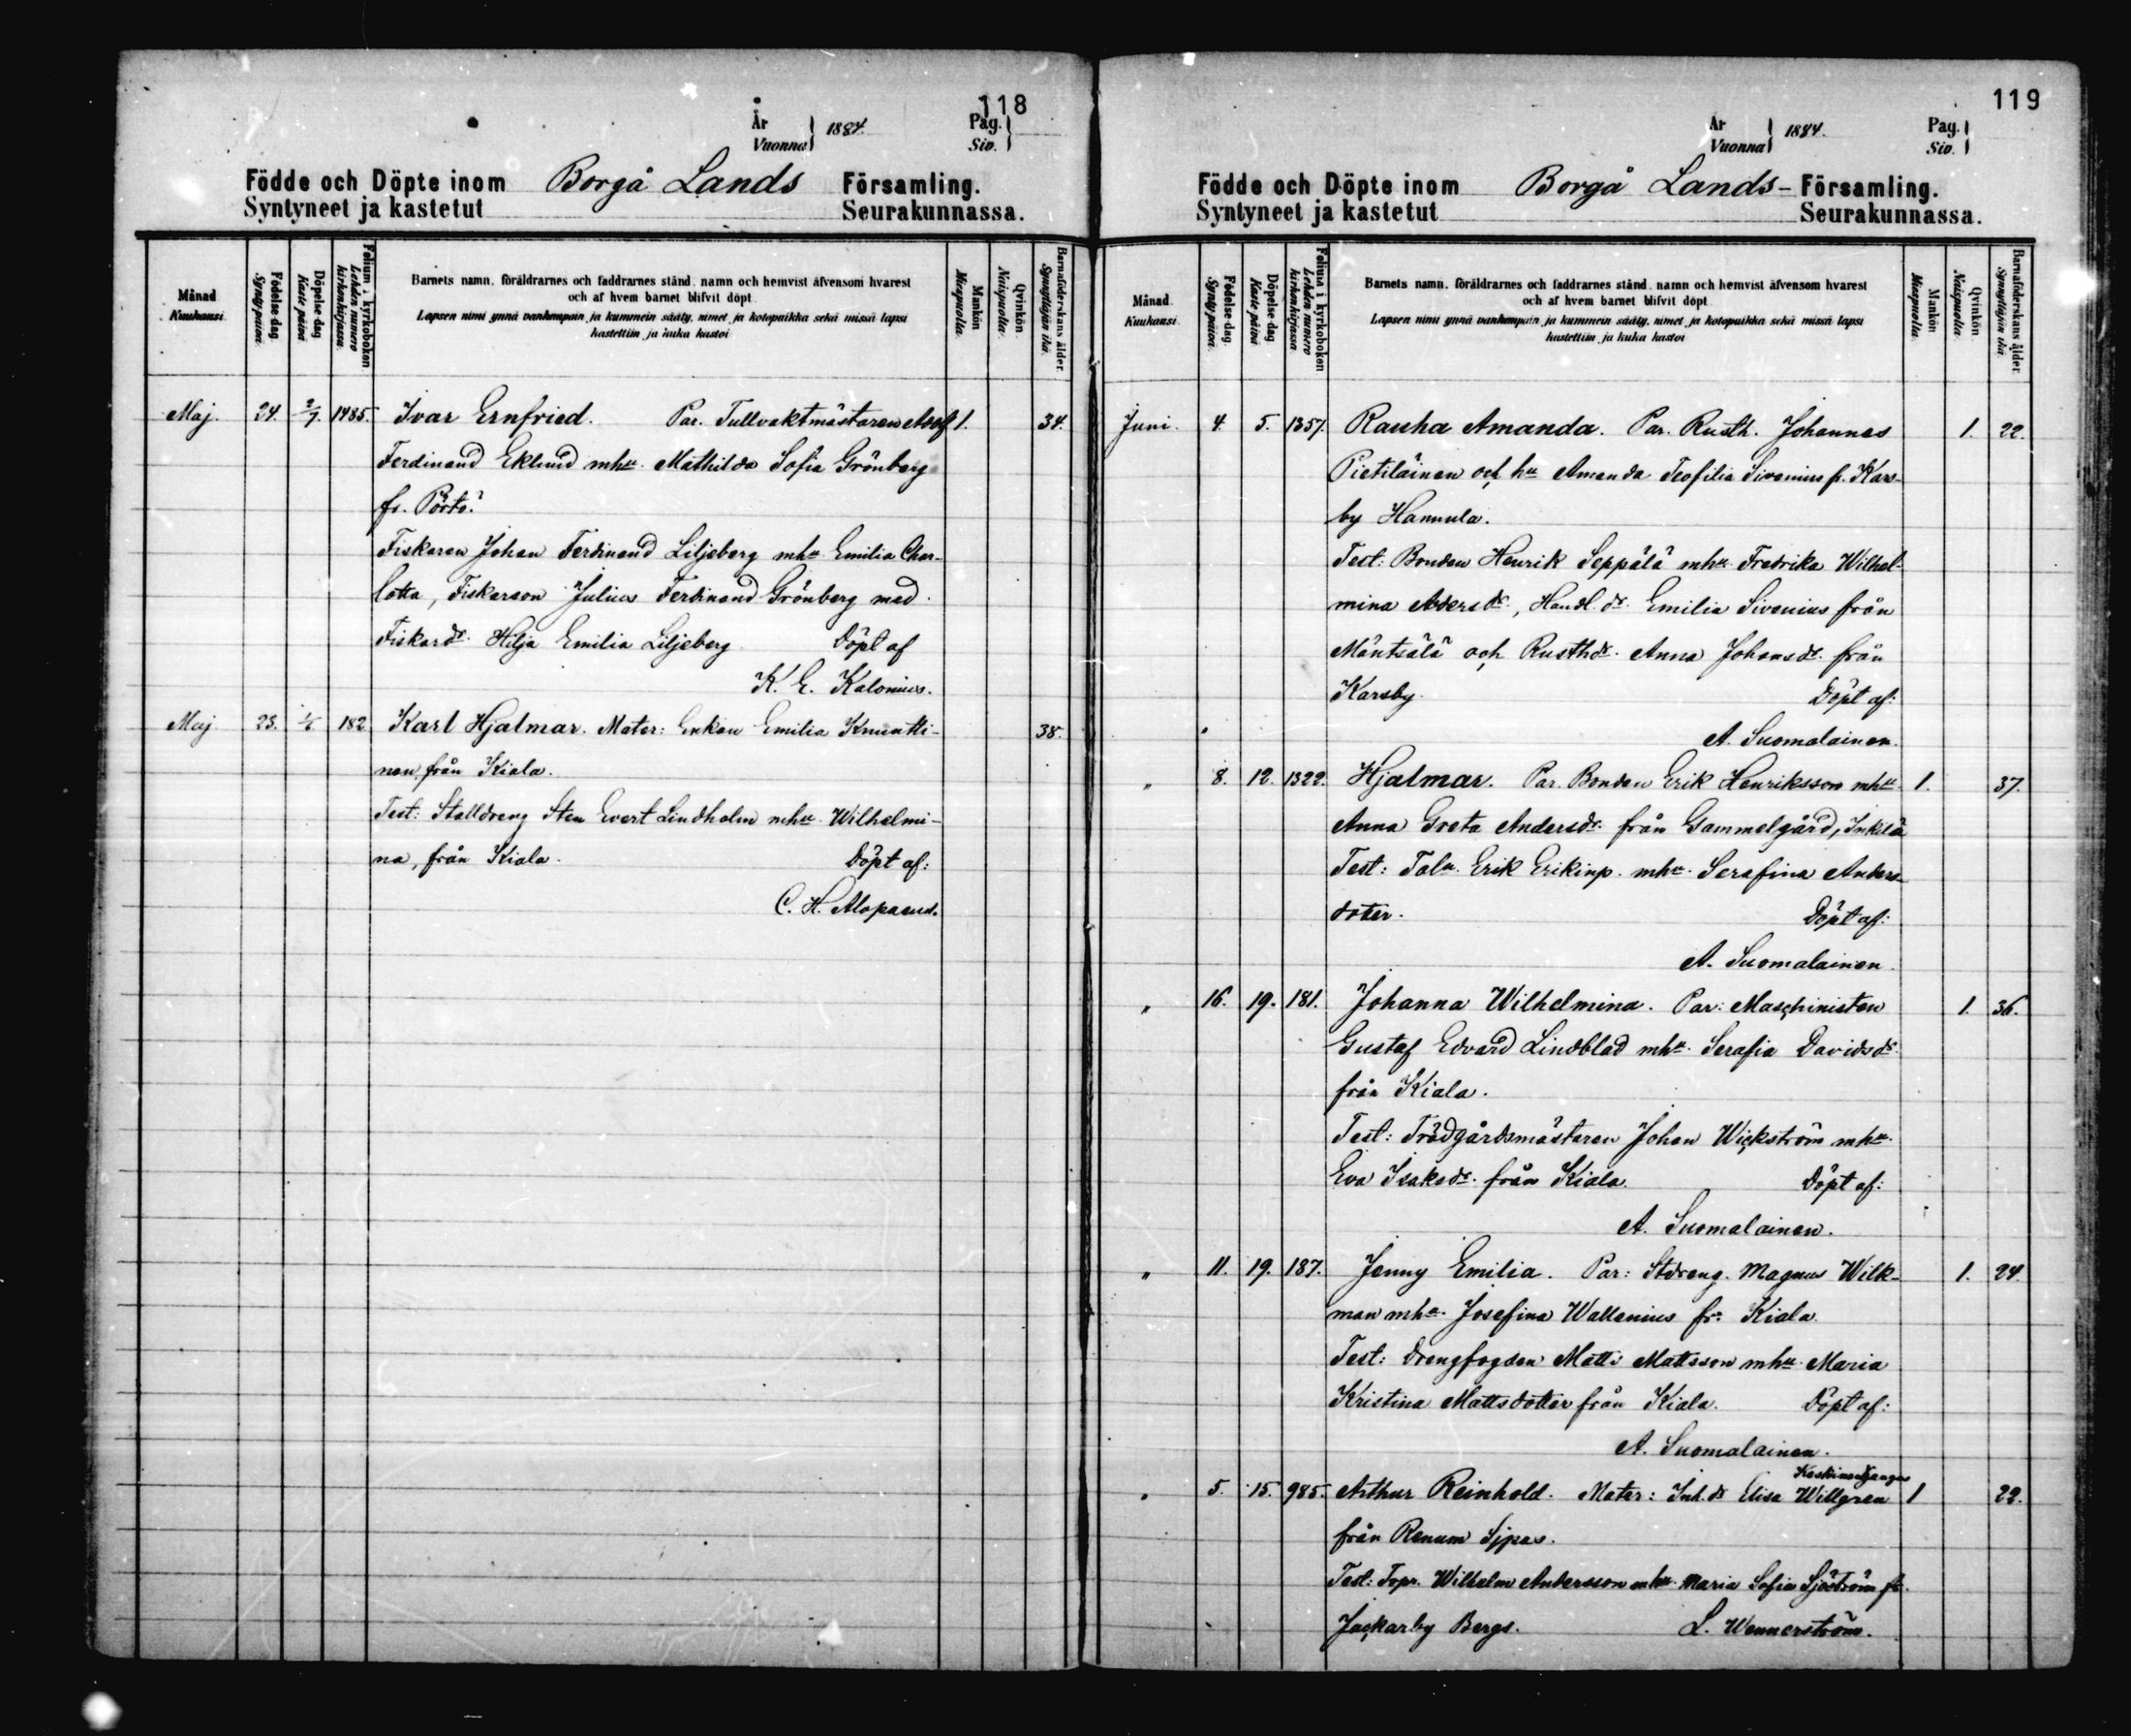 118
År
Vuonna } 1884.
Pag.
Siv.
Födde och Döpte inom Borgå Lands Församling.
Syntyneet ja kastetut Seurakunnassa.
Månad
Kuukausi.
Födelse dag.
Synty päivä.
Döpelse dag
Kaste päivä
Folium i kyrkoboken
Lehden numero
kirkonkirjassa.
Barnets namn, föräldrarnes och faddrarnes stånd, namn och hemvist äfvensom hvarest
och af hvem barnet blifvit döpt.
Lapsen nimi ynnä vanhempain ja kummein sääty, nimet ja kotopaikka sekä missä lapsi
kastettiin ja kuka kastoi
Mankön
Miespuolta.
Qvinkön
Naispuolta.
Barnaföderskans ålder.
Synnyttäjän ikä.
Maj. 24. 2/7. 1485. Ivar Ernfried. Par. Tullvaktmästaren Adolf 1. 34.
Ferdinand Eklund mhu. Mathilda Sofia Grönberg
fr. Pörtö.
Fiskaren Johan Ferdinand Liljeberg mhu Emilia Char-
lotta, Fiskareson Julius Ferdinand Grönberg med
Fiskardr. Hilja Emilia Liljeberg Döpt af
K. E. Kalonius.
Maj 23. 182 Karl Hjalmar. Mater: Enkan Emilia Knuutti- 38.
nen från Kiala.
Test: Stalldreng Sten Evert Lindholm mhu. Wilhelmi-
na, från Kiala. Döpt af:
C. H. Alopaeus.
119
År
Vuonna } 1884.
Pag.
Siv.
Födde och Döpte inom Borgå Lands- Församling.
Syntyneet ja kastetut Seurakunnassa.
Månad.
Kuukausi.
Födelse dag.
Synty päivä.
Döpelse dag
Kaste päivä
Folium i kyrkoboken
Lehden numero
kirkonkirjassa
Barnets namn, föräldrarnes och faddrarnes stånd, namn och hemvist äfvensom hvarest
och af hvem barnet blifvit döpt
Lapsen nimi ynnä vanhempain ja kummein sääty, nimet ja kotopaikka sekä missä lapsi
kastettiin ja kuka kastoi
Mankön
Miespuolta.
Qvinkön
Naispuolta
Barnaföderskans ålder.
Synnyttäjän ikä
Juni. 4. 5. 1357. Rauha Amanda. Par. Rusth. Johannes 1. 22.
Pietiläinen och hu Amanda Teofilia Sivenius fr. Kars-
by Hannula.
Test: Bonden Henrik Seppälä mhu Fredrika Wilhel-
mina Andersdr., Handl. dr. Emilia Sivenius från
Mäntsälä och Rusthdr. Anna Johansdr. från
Karsby. Döpt af:
A. Suomalainen.
" 8. 12. 1322. Hjalmar. Par. Bonden Erik Henriksson mhu 1. 37.
Anna Greta Andersdr. från Gammelgård, Inkilä
Test: Erik mhu. Serafina Anders-
dotter. Döpt af:
A. Suomalainen.
" 16. 19. 181. Johanna Wilhelmina. Par: Maschinisten 1. 36.
Gustaf Edvard Lindblad mhu. Serafia Davidsdr.
från Kiala.
Test: Trädgårdsmästaren Johan Wickström mhu.
Eva Isaksdr. från Kiala. Döpt af:
A. Suomalainen.
" 11. 19. 187. Jenny Emilia. Par: Stdreng. Magnus Wilk- 1. 24.
man mhu. Josefina Wallenius fr. Kiala
Test: Drengfogden Matts Mattsson mhu. Maria
Kristina Mattsdotter från Kiala. Döpt af:
A. Suomalainen.
" 5. 15. 985. Arthur Reinhold. Mater: Inh. dr Elisa Willgren 1 22.
från Renum Sjpas.
Test: Torp. Wilhelm Andersson mhu Maria Sofia Sjöström fr.
Jackarby Bergs. L. Wennerström.